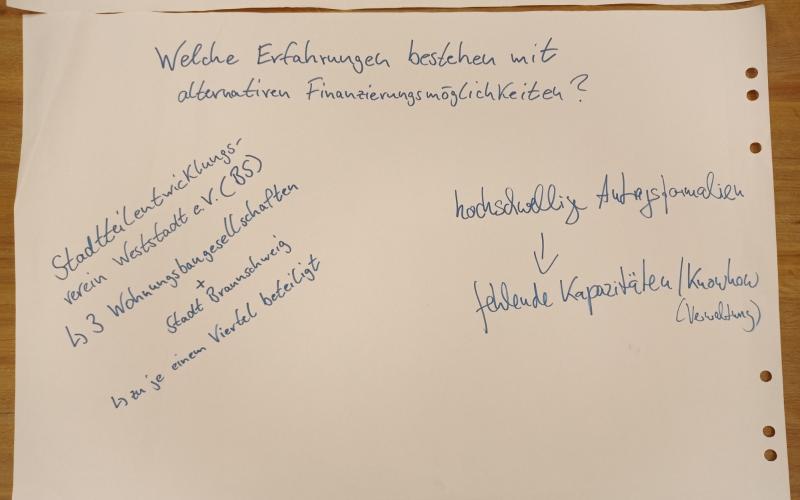 Welche Erfahrungen bestehen mit
alternativen Finanzierungsmöglichkeiten?
Stadtteilentwicklungs-
verein Weststadt e.V. (BS)
↳ 3 Wohnungsbaugesellschaften
+
Stadt Braunschweig
↳ zu je einem Viertel beteiligt
hochschwellige Antragsformalien
↓
fehlende Kapazitäten / Knowhow
(Verwaltung)